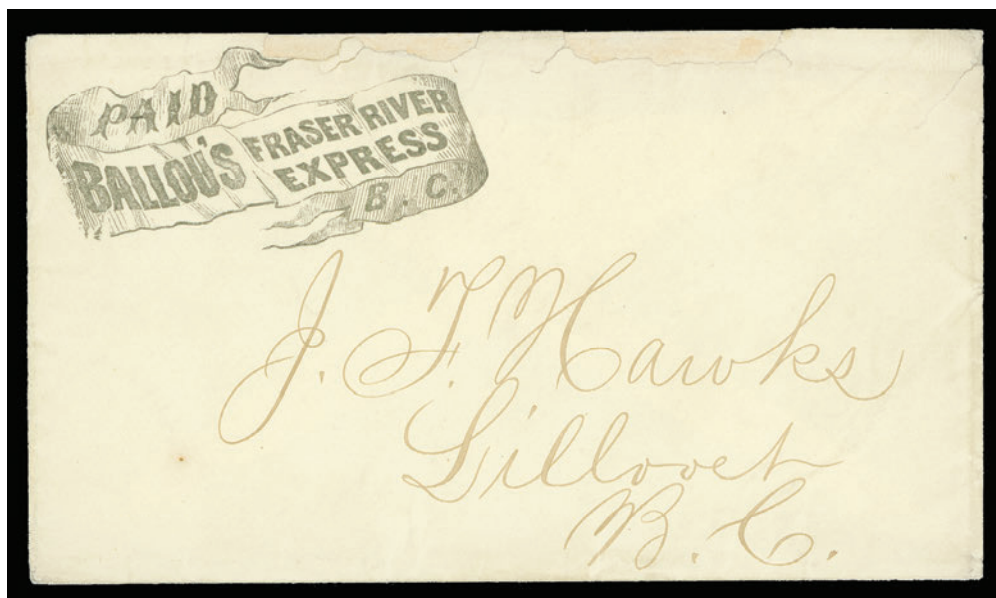 PAID
BALLOU'S
FRASER RIVER
EXPRESS
B. C.
J. F. Hawks
Lillooet
B. C.